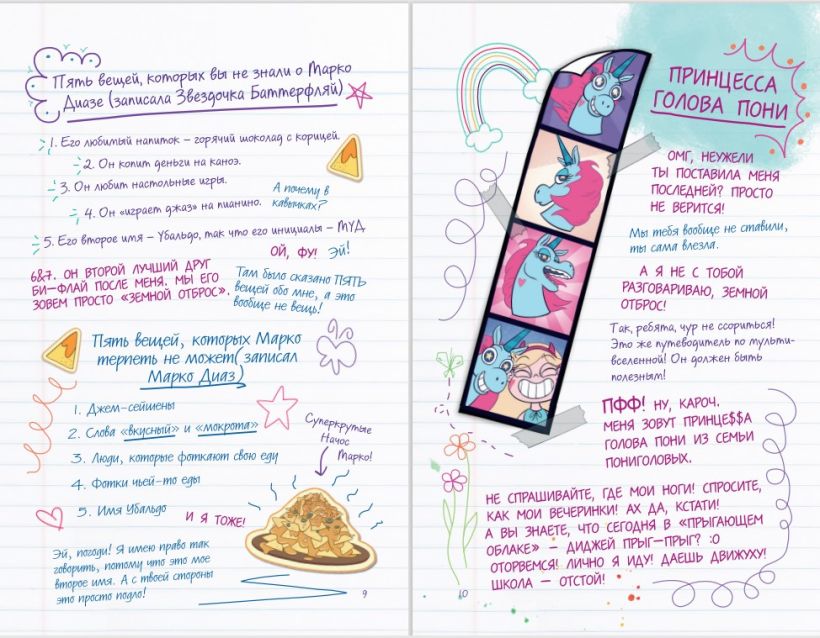 Пять вещей, которых вы не знали о Марко
Диазе (записала Звездочка Баттерфляй)
1. Его любимый напиток – горячий шоколад с корицей.
2. Он копит деньги на каноэ.
3. Он любит настольные игры.
4. Он «играет джаз» на пианино.
А почему в
кавычках?
5. Его второе имя – Убальдо, так что его инициалы – МУД
ОЙ, ФУ!
Эй!
6&7. ОН ВТОРОЙ ЛУЧШИЙ ДРУГ
БИ-ФЛАЙ ПОСЛЕ МЕНЯ. МЫ ЕГО
ЗОВЕМ ПРОСТО «ЗЕМНОЙ ОТБРОС».
Там было сказано ПЯТЬ
вещей обо мне, а это
вообще не вещь!
Пять вещей, которых Марко
терпеть не может(записал
Марко Диаз)
1. Джем-сейшены
2. Слова «вкусный» и «мокрота»
3. Люди, которые фоткают свою еду
4. Фотки чьей-то еды
5. Имя Убальдо
И Я ТОЖЕ!
Суперкрутые
Начос
Марко!
Эй, погоди! Я имею право так
говорить, потому что это мое
второе имя. А с твоей стороны
это просто подло!
9
ПРИНЦЕССА
ГОЛОВА ПОНИ
ОМГ, НЕУЖЕЛИ
ТЫ ПОСТАВИЛА МЕНЯ
ПОСЛЕДНЕЙ? ПРОСТО
НЕ ВЕРИТСЯ!
Мы тебя вообще не ставили,
ты сама влезла.
А Я НЕ С ТОБОЙ
РАЗГОВАРИВАЮ, ЗЕМНОЙ
ОТБРОС!
Так, ребята, чур не ссориться!
Это же путеводитель по мульти-
вселенной! Он должен быть
полезным!
ПФФ! НУ, КАРОЧ.
МЕНЯ ЗОВУТ ПРИНЦЕ$$А
ГОЛОВА ПОНИ ИЗ СЕМЬИ
ПОНИГОЛОВЫХ.
НЕ СПРАШИВАЙТЕ, ГДЕ МОИ НОГИ! СПРОСИТЕ,
КАК МОИ ВЕЧЕРИНКИ! АХ ДА, КСТАТИ!
А ВЫ ЗНАЕТЕ, ЧТО СЕГОДНЯ В «ПРЫГАЮЩЕМ
ОБЛАКЕ» – ДИДЖЕЙ ПРЫГ-ПРЫГ? :О
ОТОРВЕМСЯ! ЛИЧНО Я ИДУ! ДАЕШЬ ДВИЖУХУ!
ШКОЛА – ОТСТОЙ!
10